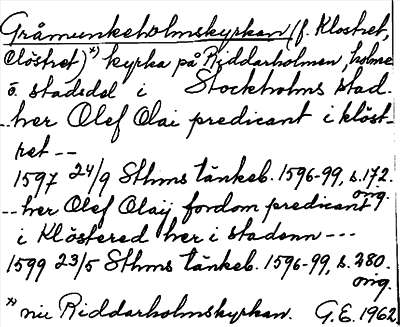 Gråmunkeholmskyrkan (f. Klostret,
Clöstret)*) kyrka på Riddarholmen, holme
o. stadsdel i Stockholms stad.
--her Olef Olai predicant i klöst-
ret --
1597 24/9 Sthms tänkeb. 1596-99, s. 172.
orig.
--her Olef Olaij fordom predicant
i Klöstered her i stadenn ---
1599 23/5 Sthms tänkeb. 1596-99, s. 380.
orig.
*) nu Riddarholmskyrkan. G.E. 1962